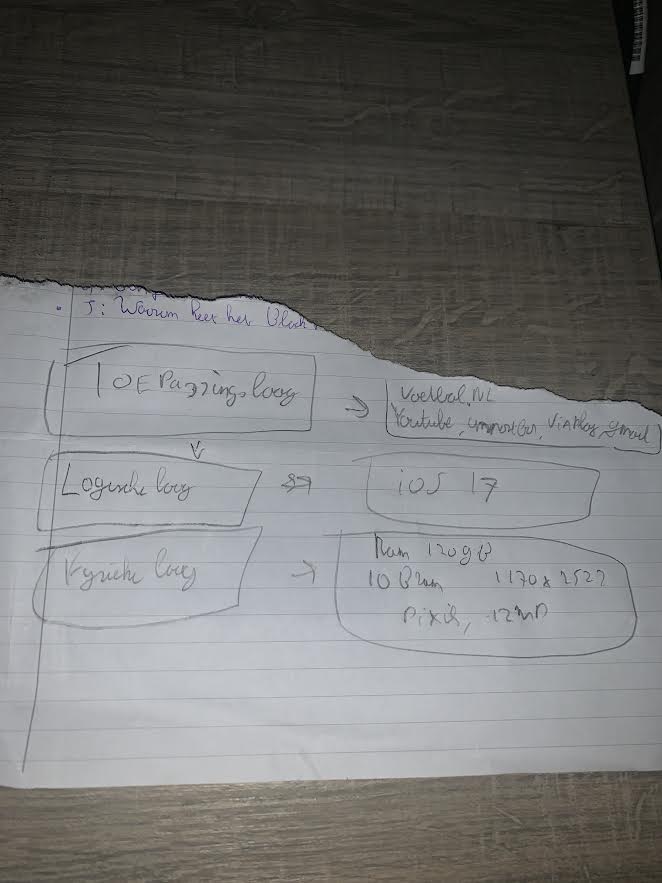 5: Waarom het
Toepassings laag
Voetbal.NL
Youtube, Viaplay, gmail
Logische laag
iOS 17
Fysieke laag
Ram 120gB
1170 x 2522
Pixils, 12MP